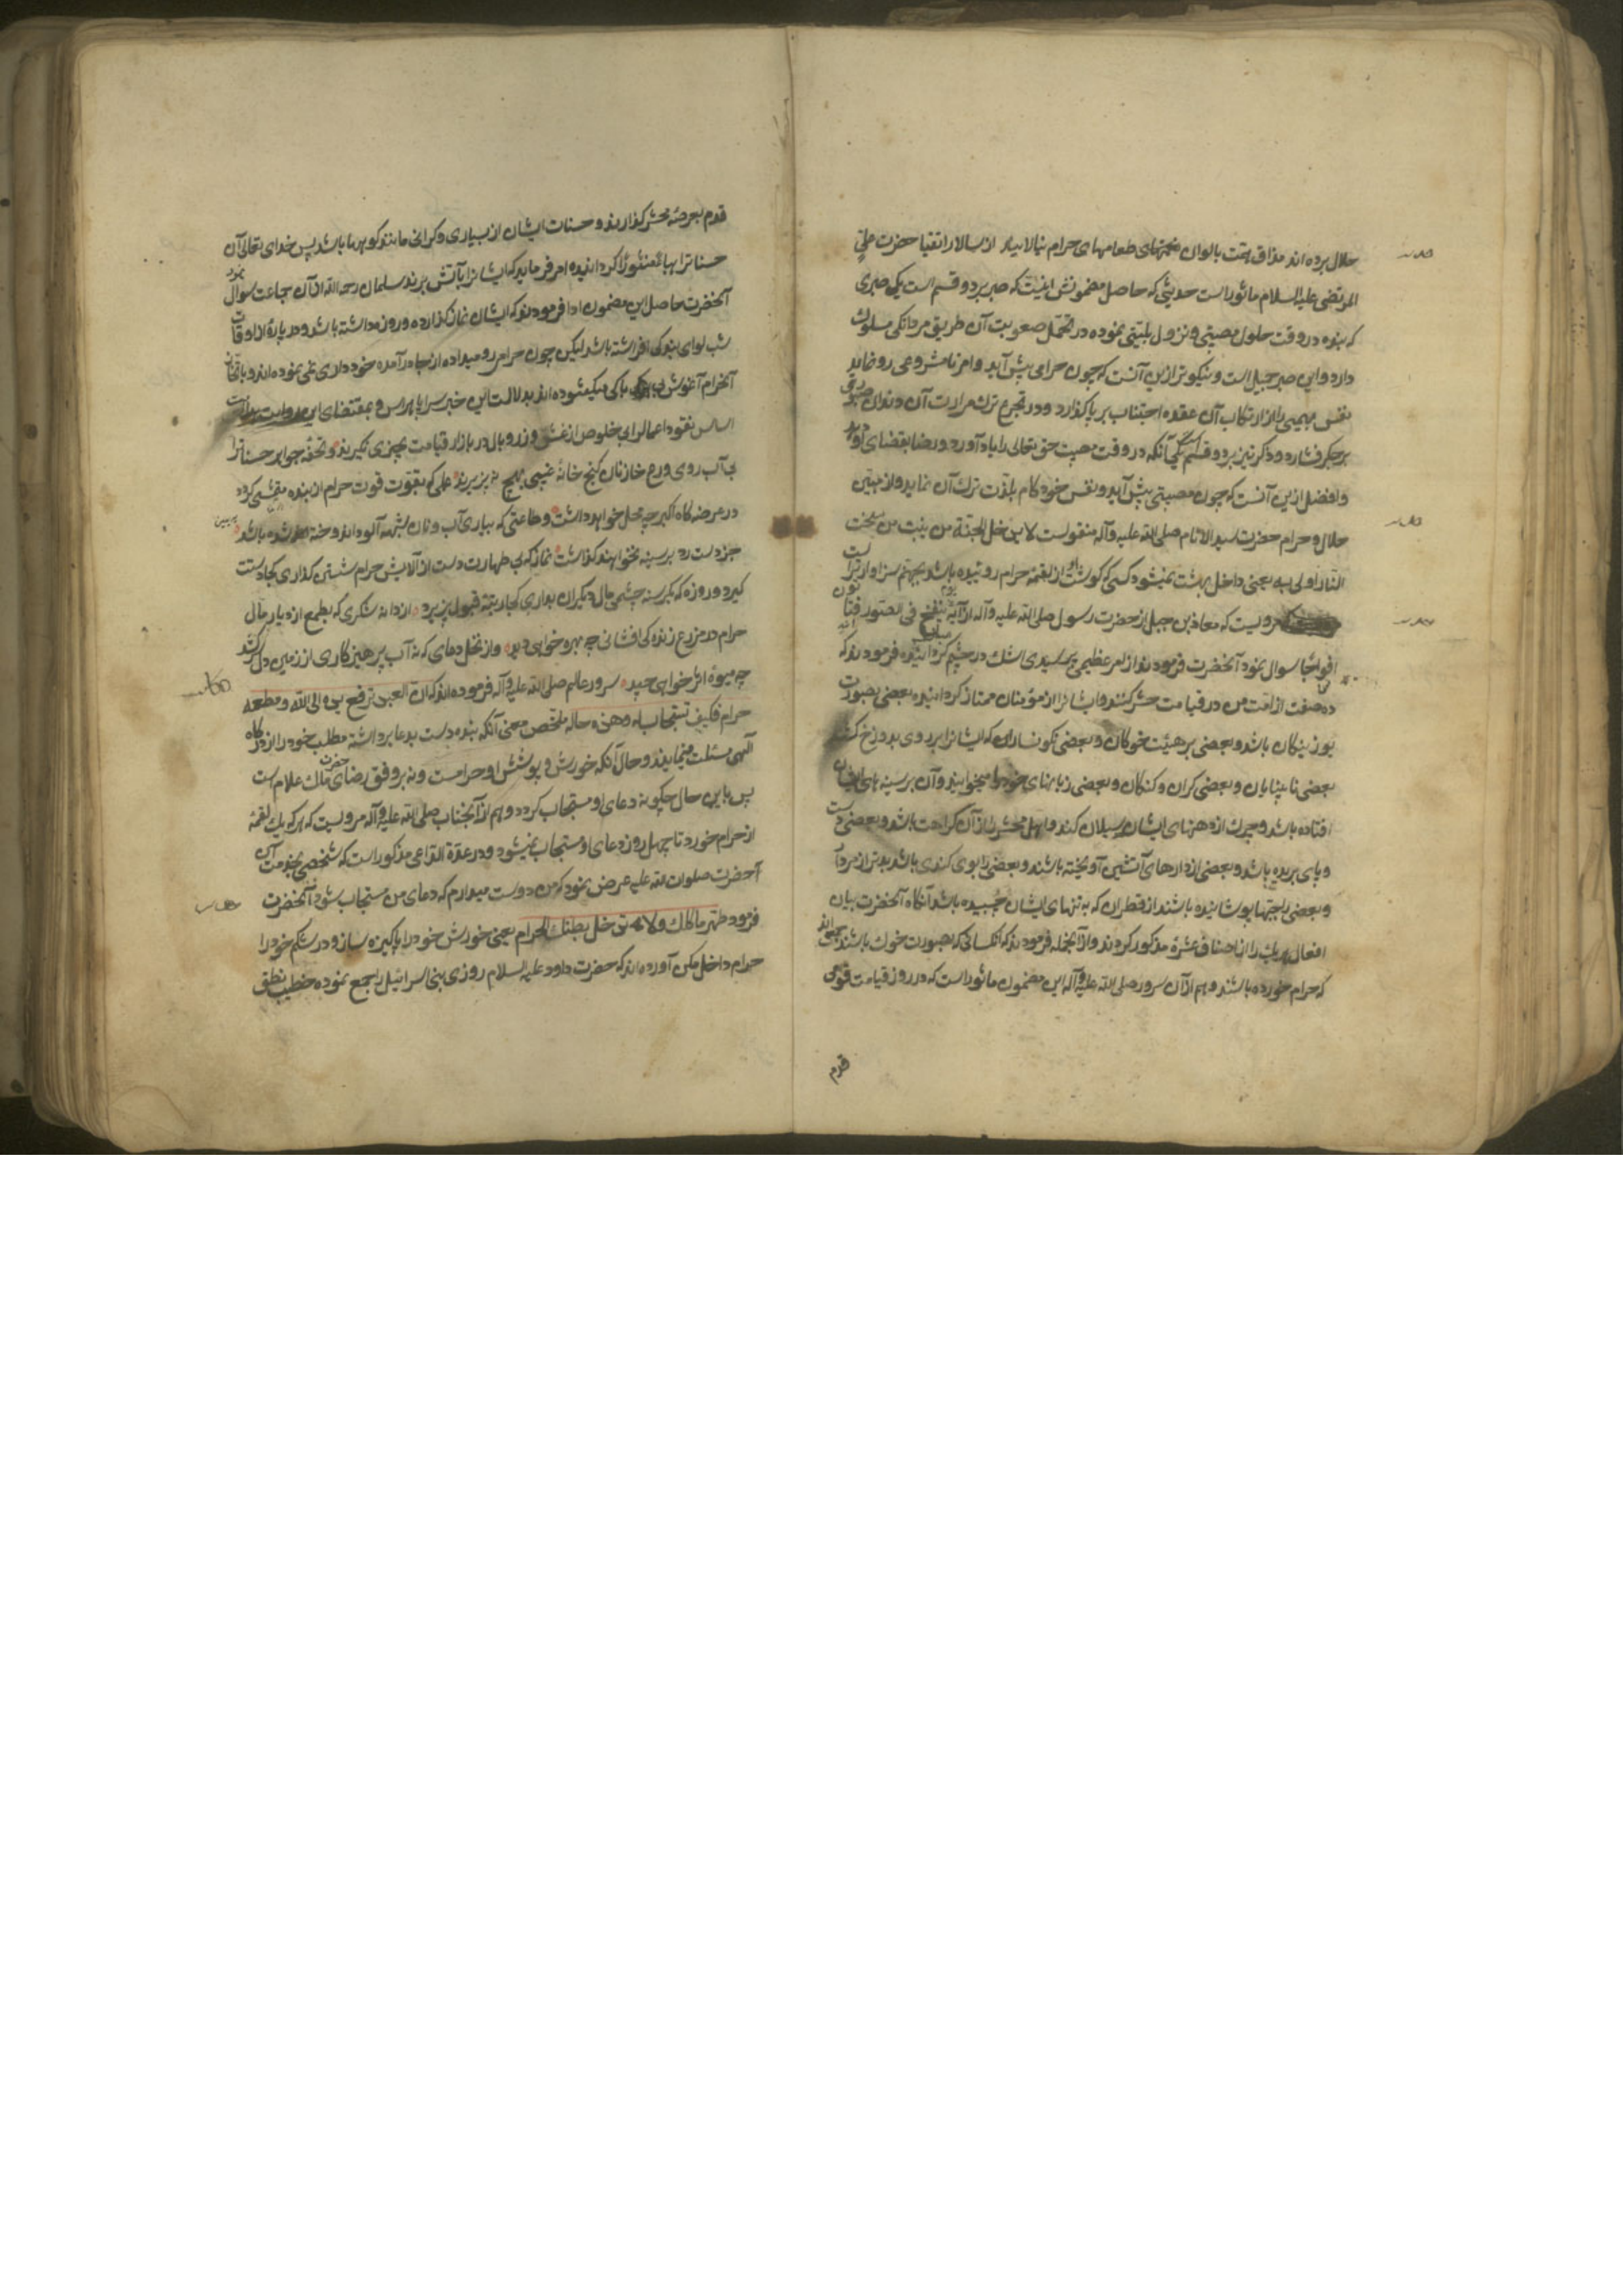 حلال برده اند مذاق همت بالوان طعامهای حرام نیالایند از سالار اتقیا حضرت علی
المرتضی علیه السلام ماثور است حدیثی که حاصل مضمونش اینست که صبر بر دو قسم است یکی صبری
که بنده در وقت حلول مصیبتی و نزول بلیتی نموده در تحمل صعوبت آن طریق مردانکی مسلوک
دارد و این صبر جمیل است و نیکوتر ازین آنست که چون حرامی پیش آید و امر نامشروعی رو نماید
نفس بهیمی را از ارتکاب آن عقده اجتناب بر پا کذارد و در تجرع ترک مرارت آن دندان صبر
بر جکر فشارد و ذکر نیز بر دو قسم یکی آنکه در وقت مصیبت حق تعالی را یاد آورد و رضا بقضای او
و افضل ازین آنست که چون معصیتی پیش آید و نفس خود کام بلذت ترک آن نماید و از مبین
حلال و حرام حضرت سید الانام صلی الله علیه و آله منقولست لا یدخل الجنة من ینبت من سحت
النار اولی به یعنی داخل بهشت نمیشود کسی که کوشت او از لقمه حرام روئیده باشد بجهنم سزاوارتر است
مرویست که معاذ بن جبل از حضرت رسول صلی الله علیه و آله از آیه یوم ینفخ فی الصور فتاتون
افواجا سوال نمود آنحضرت فرمودند از امر عظیمی پرسیدی اشک در چشم مبارک کردانیده فرمودند که
ده صنف از امت من در قیامت حشر کنند و ایشانرا از مؤمنان ممتاز کردانیده بعضی بصورت
بوزینکان باشد و بعضی بر هیئت خوکان و بعضی نکونساران که ایشانرا بر روی بدوزخ کشند
بعضی نابینایان و بعضی کران و کنکان و بعضی زبانهای خود را میخوایند و آن بر سینه های ایشان
افتاده باشد و چرک از دهنهای ایشان سیلان کند و اهل محشر را از آن کراهت باشد و بعضی دست
و پای بریده باشد و بعضی از دارهای آتشین آویخته باشند و بعضی را بوی کندی باشد بدتر از مردار
و بعضی را جبتها پوشانیده باشند از قطران که به تنهای ایشان چسبیده باشد آنکاه آنحضرت بیان
افعال هر یک را از اصناف عشرة مذکور کردند و از آنجمله فرمودند که آنکسانی که بصورت خوک باشند جمعی اند
که حرام خورده باشند و هم از آن سرور صلی الله علیه و آله این مضمون ماثور است که در روز قیامت قومی
قدم
قدم بعرصه محشر کذارند و حسنات ایشان از بسیاری و کرانی مانند کوهها باشد پس خدای تعالی آن
حسناترا هباء منثورا کردانیده امر فرماید که ایشانرا بآتش برند سلمان رحمه الله از آن جماعت سوال نمود
آنحضرت حاصل این مضمون ادا فرمودند که ایشان نماز کذارده و روزه داشته باشد و در پاره از اوقات
شب لوای بندکی افراشته باشد لیکن چون حرامی رو میداده از جا در آمده خودداری نمی نموده اند
آنحرام آغوش بی باکی میکشوده اند بدلالت این خبر سراپا هراس و بمقتضای این روایت
اساس نقود اعمال را بی خلوص از غش و زر وبال در بازار قیامت بچیزی نکیرند و تحفه جواهر حسناترا
بی آب روی ورع خازنان کنج خانه غیبی بهیچ نپذیرند عملی که بقوت قوت حرام از بنده متمشی کردد
در عرضه کاه اکبر چه محل خواهد داشت و طاعتی که بیاری آب و نان بشبهه آلوده اندوخته شده باشد
جز دست رد بر سینه نخواهند کذاشت نماز که بی طهارت دست از آلایش حرام شستن کذاری کجا دست
کیرد و روزه که بکرسنه چشمی مال دیکران بداری کجا رتبه قبول پذیرد از دانه شکری که بطمع ازدیاد مال
حرام در مزرع زنده کی افشانی چه بهره خواهی دید و از نخل دعای که نه آب پرهیزکاری از زمین دل سر کشد
چه میوه اثر خواهی چید سرور عالم صلی الله علیه و آله فرموده اند که ان العبد یرفع یده الی الله و مطعمه
حرام فکیف تستجاب له و هذه حاله ملخص معنی آنکه بنده دست بدعا برداشته مطلب خود را از درکاه
الهی مسئلت مینماید و حال آنکه خورش و پوشش او حرامست و نه بر وفق رضای حضرت ملک علام است
پس باین حال چکونه دعای او مستجاب کردد و هم از آنجناب صلی الله علیه و آله مرویست که هر که یک لقمه
از حرام خورد تا چهل روز دعای او مستجاب نمیشود و در عدة الداعی مذکور است که شخصی بخدمت آن
حضرت صلوات الله علیه عرض نمود که من دوست میدارم که دعای من مستجاب شود آنحضرت
فرمود طهر ماکلک و لا تدخل بطنک الحرام یعنی خورش خود را پاکیزه ساز و در شکم خود را
حرام داخل مکن آورده اند که حضرت داود علیه السلام روزی بنی اسرائیل را جمع نموده خطیب نطق